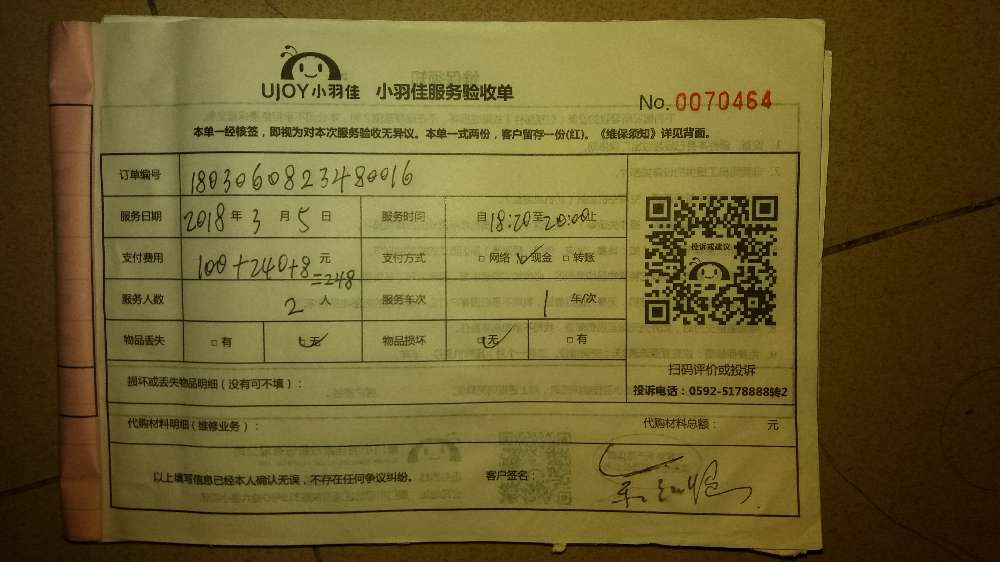 UJOY小羽佳 小羽佳服务验收单
No. 0070464
本单一经核签，即视为对本次服务验收无异议。本单一式两份，客户留存一份(红)。《维保须知》详见背面。
订单编号 1803060823480016
服务日期 2018年3月5日 服务时间 自18:20至20:00止
支付费用 100+240+8元=248 支付方式 □网络 ☑现金 □转账
服务人数 2人 服务车次 1车/次
物品丢失 □有 ☑无 物品损坏 ☑无 □有
投诉或建议
扫码评价或投诉
投诉电话：0592-5178888转2
损坏或丢失物品明细（没有可不填）：
代购材料明细（维修业务）： 代购材料总额： 元
以上填写信息已经本人确认无误，不存在任何争议纠纷。 客户签名：